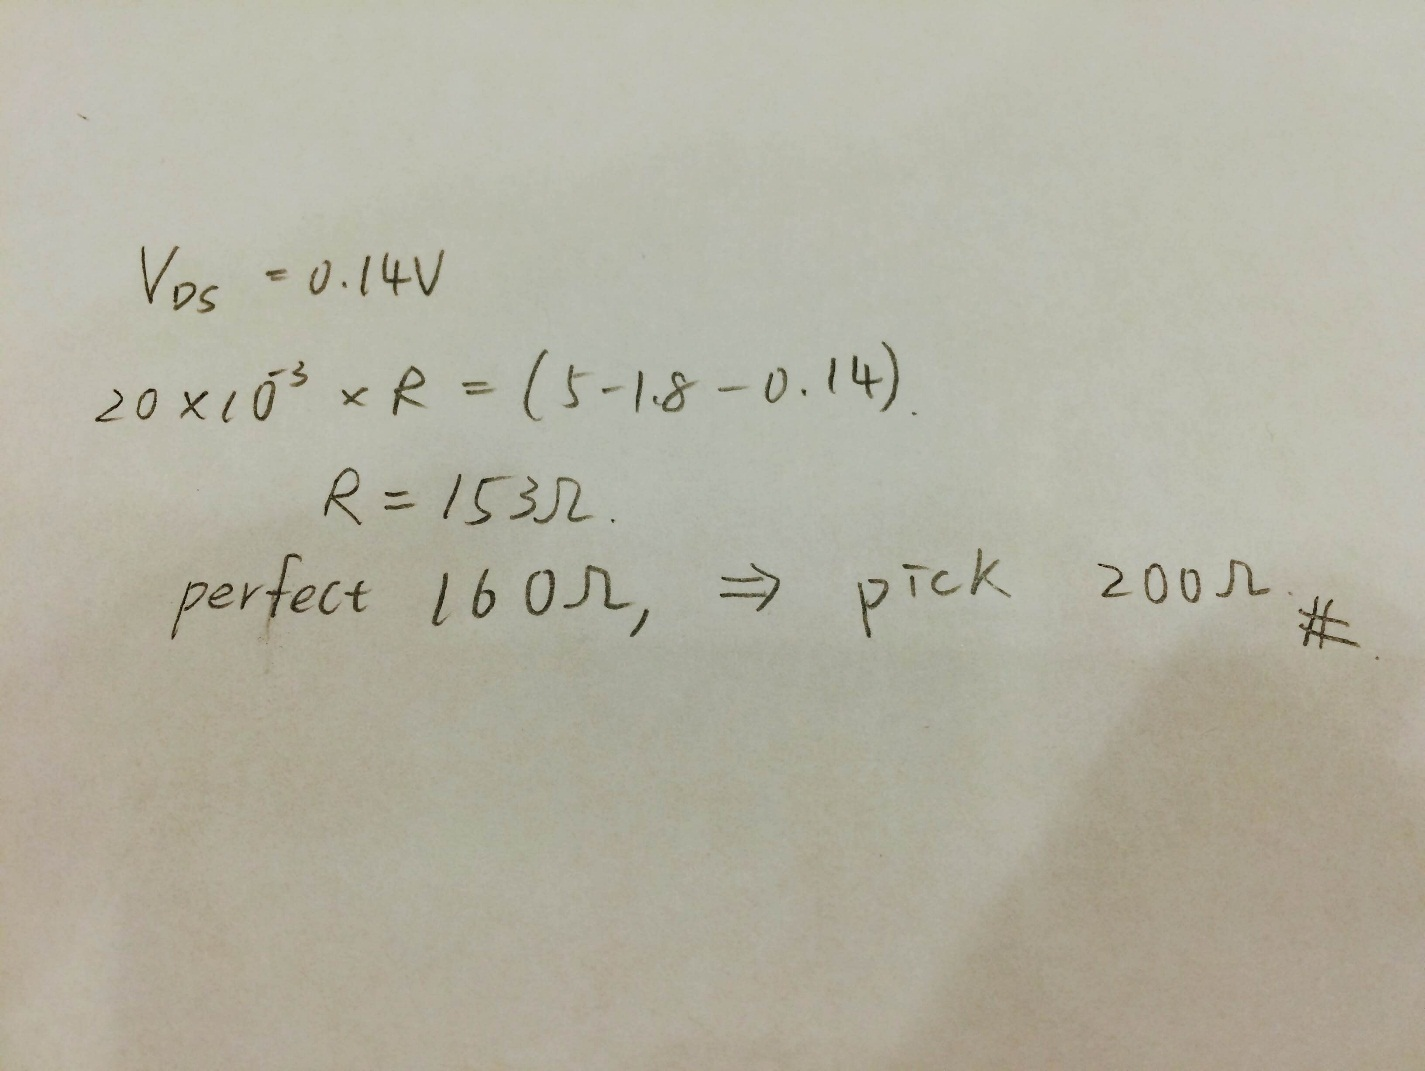 V_DS = 0.14V
20 × 10⁻³ × R = (5-1.8-0.14).
R = 153Ω.
perfect 160Ω, ⇒ pick 200Ω. #.